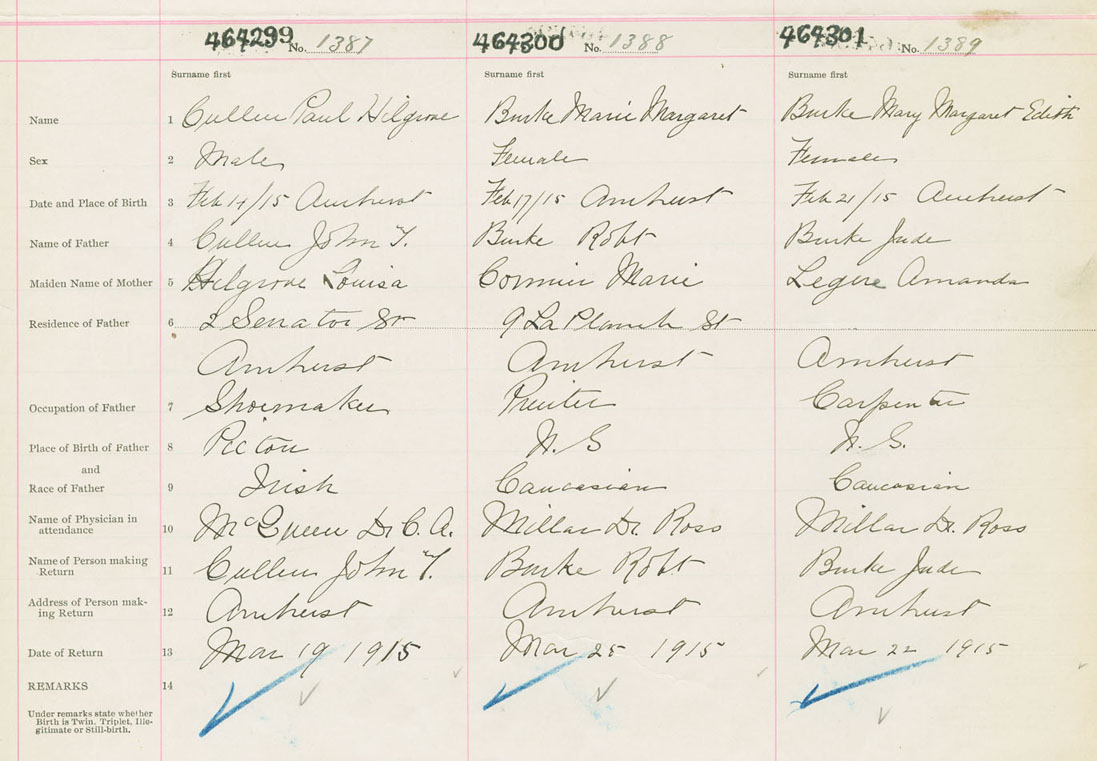 464299 No. 1387 464300 No. 1388 464301 No. 1389
Surname first Surname first Surname first
Name 1 Cullen Paul Hilgrove Burke Marie Margaret Burke Mary Margaret Edith
Sex 2 Male Female Female
Date and Place of Birth 3 Feb 14/15 Amherst Feb 17/15 Amherst Feb 21/15 Amherst
Name of Father 4 Cullen John T. Burke Robt Burke Jude
Maiden Name of Mother 5 Hilgrove Louisa Cormier Marie Legere Amanda
Residence of Father 6 2 Senator St 9 La Planch St
Amherst Amherst Amherst
Occupation of Father 7 Shoemaker Printer Carpenter
Place of Birth of Father 8 Picton N. S N. S.
and
Race of Father 9 Irish Caucasian Caucasian
Name of Physician in
attendance 10 McQueen Dr C. A. Millar Dr. Ross Millar Dr. Ross
Name of Person making
Return 11 Cullen John T. Burke Robt Burke Jude
Address of Person mak-
ing Return 12 Amherst Amherst Amherst
Date of Return 13 Mar 19 1915 Mar 25 1915 Mar 22 1915
REMARKS 14
Under remarks state whether
Birth is Twin, Triplet, Ille-
gitimate or Still-birth.